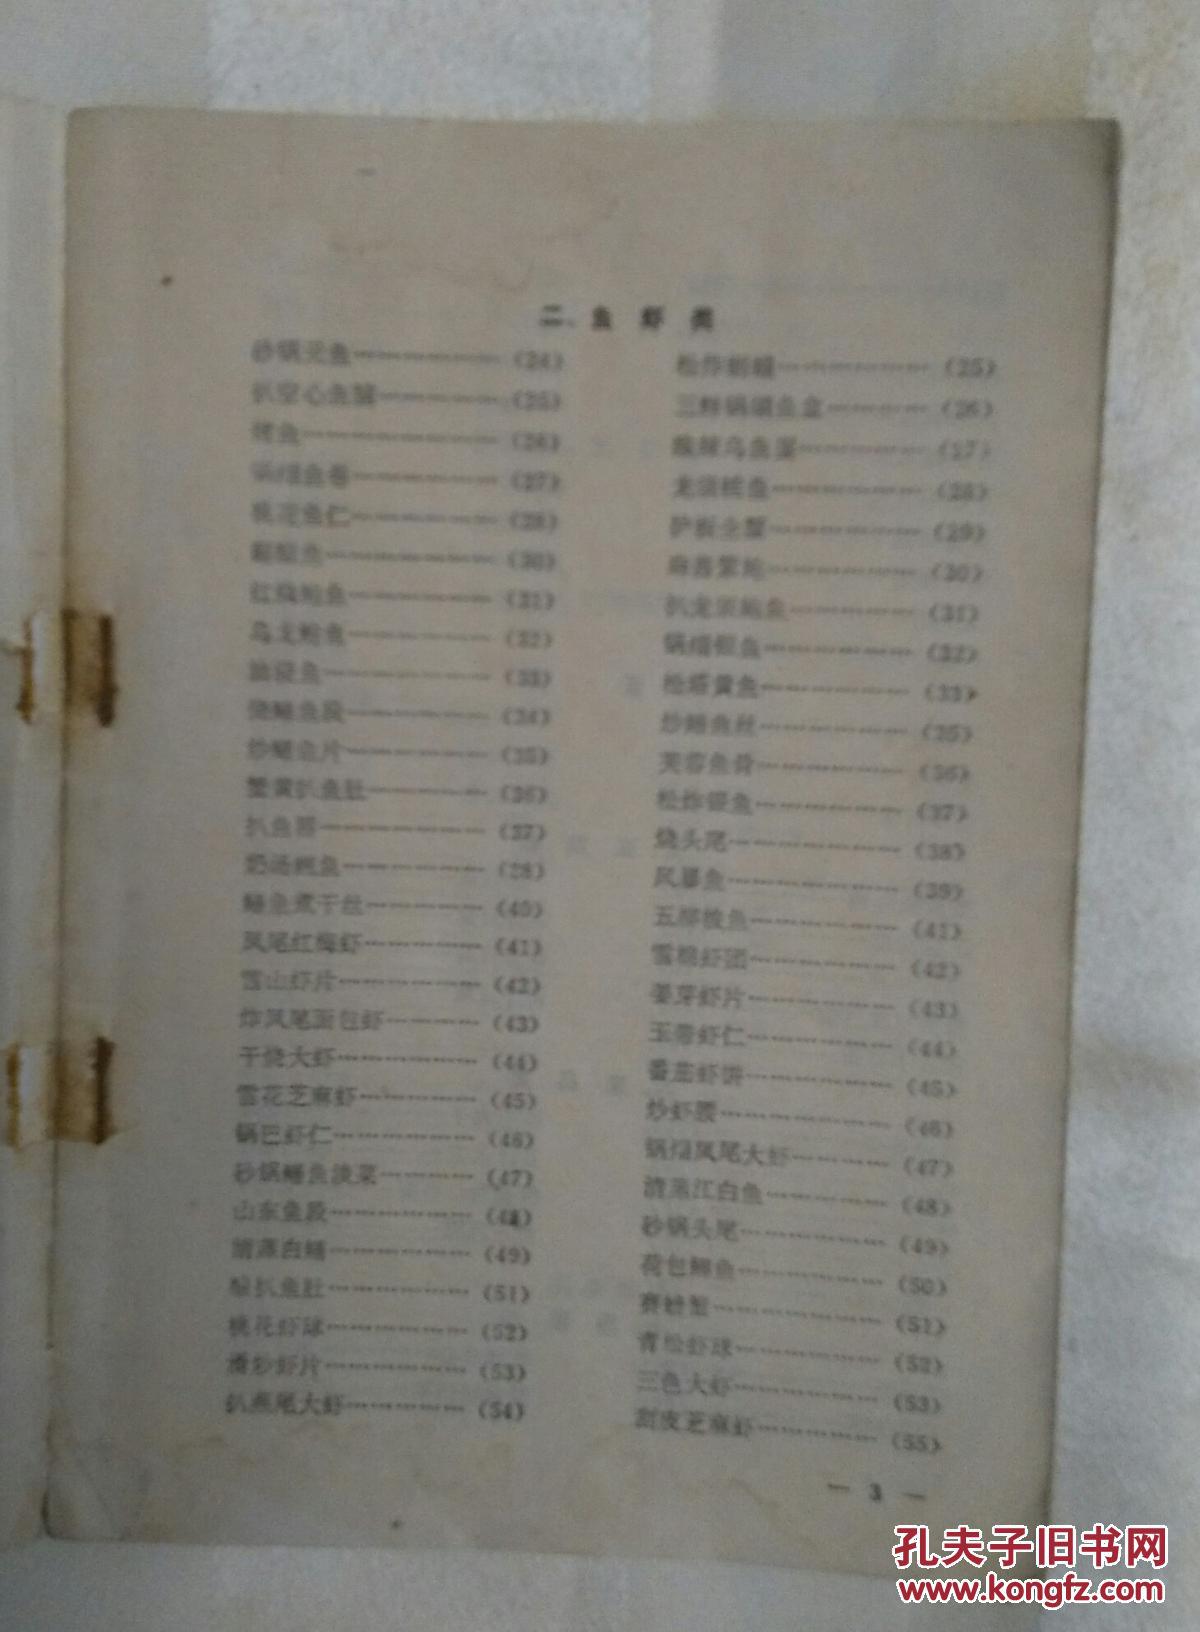 二、鱼 虾 类
砂锅元鱼………………(24)
扒空心鱼…………(25)
烤鱼………………(26)
鱼卷………………(27)
桃花鱼仁………………(28)
鱼………………(30)
红烧鲍鱼………………(31)
乌龙鲍鱼………………(32)
油浸鱼………………(33)
烧鳝鱼段………………(34)
炒鳝鱼片………………(35)
蟹黄扒鱼肚……………(36)
扒鱼唇………………(37)
奶汤鲫鱼………………(38)
鳝鱼煮干丝……………(40)
凤尾红梅虾……………(41)
雪山虾片………………(42)
炸凤尾面包虾…………(43)
干烧大虾………………(44)
雪花芝麻虾……………(45)
锅巴虾仁………………(46)
砂锅鳝鱼菠菜…………(47)
山东鱼段………………(48)
清蒸白鳝………………(49)
扒鱼肚………………(51)
桃花虾球………………(52)
滑炒虾片………………(53)
扒燕尾大虾……………(54)
松炸………………(25)
三鲜锅鱼盒…………(26)
酸辣乌鱼蛋……………(27)
龙须鱼………………(28)
全蟹………………(29)
麻酱紫鲍………………(30)
扒龙须鲍鱼……………(31)
锅塌银鱼………………(32)
松塔黄鱼………………(33)
炒鳝鱼丝………………(35)
芙蓉鱼骨………………(36)
松炸银鱼………………(37)
烧头尾………………(38)
风暴鱼………………(39)
五柳梭鱼………………(41)
雪棉虾团………………(42)
姜芽虾片………………(43)
玉带虾仁………………(44)
番茄虾饼………………(45)
炒虾腰………………(46)
锅塌凤尾大虾…………(47)
清蒸江白鱼……………(48)
砂锅头尾………………(49)
荷包鲫鱼………………(50)
赛螃蟹………………(51)
青松虾球………………(52)
三色大虾………………(53)
割皮芝麻虾……………(55)
— 3 —
孔夫子旧书网
www.kongfz.com